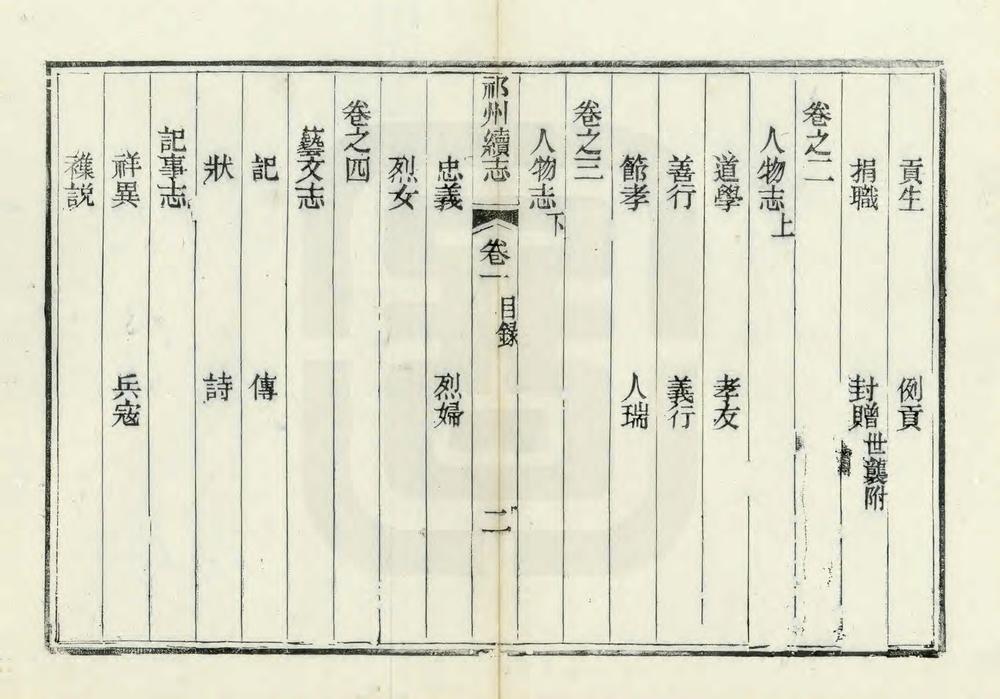 貢生 例貢
捐職 封贈世襲附
卷之二
人物志上
道學 孝友
善行 義行
節孝 人瑞
卷之三
人物志下
祁州續志 卷一 目録 二
忠義 烈婦
烈女
卷之四
藝文志
記 傳
狀 詩
記事志
祥異 兵寇
襍説